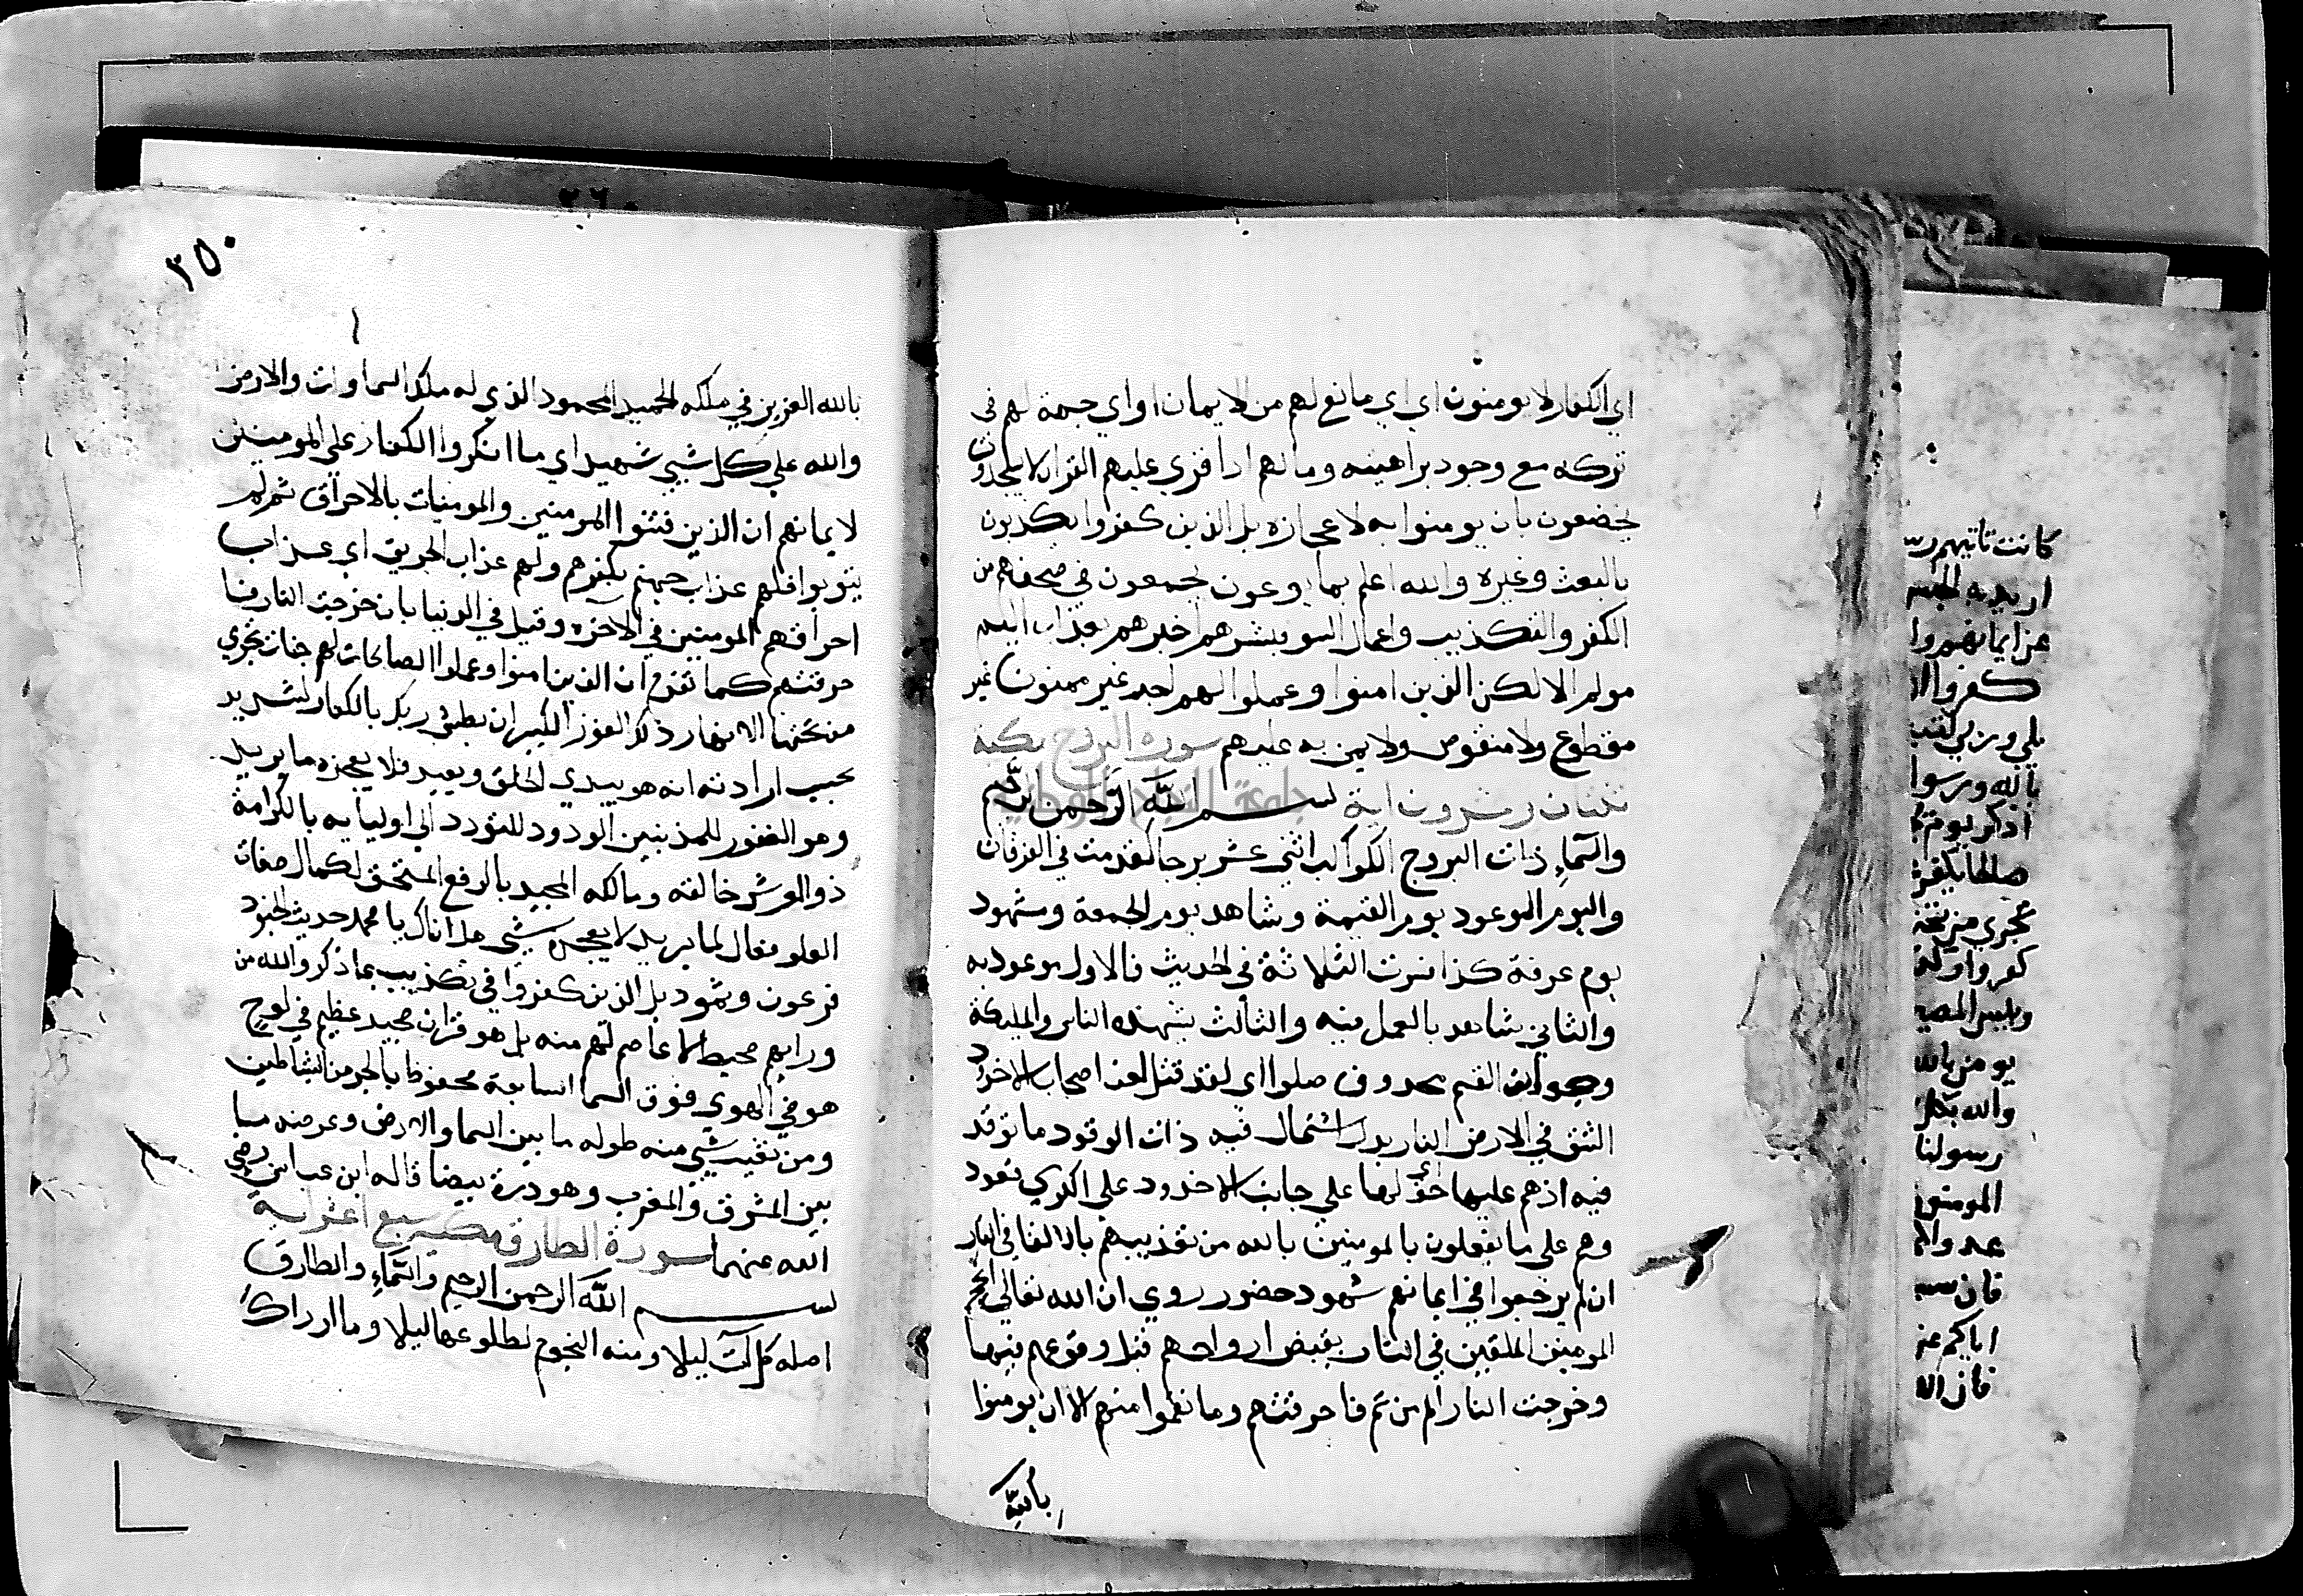 اي الكفار لا يومنون اي اي مانع لهم من الايمان او اي حجة لهم في
تركه مع وجود براهينه وما لهم اذا قري عليهم القران لا يسجدون
يخضعون بان يومنوا به لاعجازه بل الذين كفروا يكذبون
بالبعث وغيره والله اعلم بما يوعون يجمعون في صحفهم من
الكفر والتكذيب واعمال السو فبشرهم اخبرهم بعذاب اليم
مولم الا لكن الذين امنوا وعملوا لهم اجر غير ممنون غير
مقطوع ولا منقوص ولا يمن به عليهم سورة البروج مكية
ثنتان وعشرون اية بسم الله الرحمن الرحيم
والسماء ذات البروج الكواكب اثنى عشر برجا تقدمت في الفرقان
واليوم الموعود يوم القيمة وشاهد يوم الجمعة ومشهود
يوم عرفة كذا فسرت الثلاثة في الحديث فالاول موعود به
والثاني شاهد بالعمل فيه والثالث يشهده الناس والمليكة
وجواب القسم محدوف صلوا اي لقد قتل لعن اصحاب الاخدود
الشق في الارض النار بدل اشتمال فيه ذات الوقود ما توقد
فيه اذهم عليها اي حولها على جانب الاخدود على الكرسي قعود
وهم على ما يفعلون بالمومنين بالله من تعذيبهم بالالقا في النار
ان لم يرجعوا في ايمانهم شهود حضور روي ان الله تعالى انجى
المومنين الملقين في النار بقبض ارواحهم قبل وقوعهم فيها
وخرجت النار الى من ثم فاحرقتهم وما نقموا منهم الا ان يومنوا
بالله
٣٥٠
بالله العزيز في ملكه الحميد المحمود الذي له ملك السماوات والارض
والله على كل شيي شهيد اي ما انكروا الكفار على المومنين
لايمانهم ان الذين فتنوا المومنين والمومنات بالاحراق ثم لم
يتوبوا فلهم عذاب جهنم بكفرهم ولهم عذاب الحريق اي عذاب
احراقهم المومنين في الآخره وقيل في الدنيا بان خرجت النار فا
حرقتهم كما تقدم ان الذين امنوا وعملوا الصالحات لهم جنات تجري
من تحتها الانهار ذلك الفوز الكبير ان بطش ربك بالكفار لشديد
بحسب ارادته انه هو يبدي الخلق ويعيد فلا يعجزه ما يريد
وهو الغفور للمذنبين الودود المتودد الى اوليايه بالكرامة
ذو العرش خالقه ومالكه المجيد بالرفع المستحق لكمال صفات
العلو فعال لما يريد لا يعجزه شيي هل اتاك يا محمد حديث الجنود
فرعون وثمود بل الذين كفروا في تكذيب بما ذكر والله من
ورايهم محيط لا عاصم لهم منه بل هو قران مجيد عظيم في لوح
هو في الهوي فوق السما السابعة محفوظ بالجر من الشياطين
ومن تغيير شيي منه طوله ما بين السما والارض وعرضه ما
بين المشرق والمغرب وهو درة بيضا قاله ابن عباس رضي
الله عنهما سورة الطارق مكية سبع اعشر اية
بسم الله الرحمن الرحيم والسماء والطارق
اصله كل آت ليلا ومنه النجوم لطلوعها ليلا وما ادراك
كانت تاتيهم
اريد به الجنس
عن ايمانهم وا
كفروا ا
بلى وربي لتبعثن
بالله ورسوله
اذكر يوم
صالحا يكفر
تجري من تحتها
كفروا
وبيس المصير
يومن بالله
والله بكل
رسولنا
المومنون
عدوا
فان
اياكم عن
فان الله